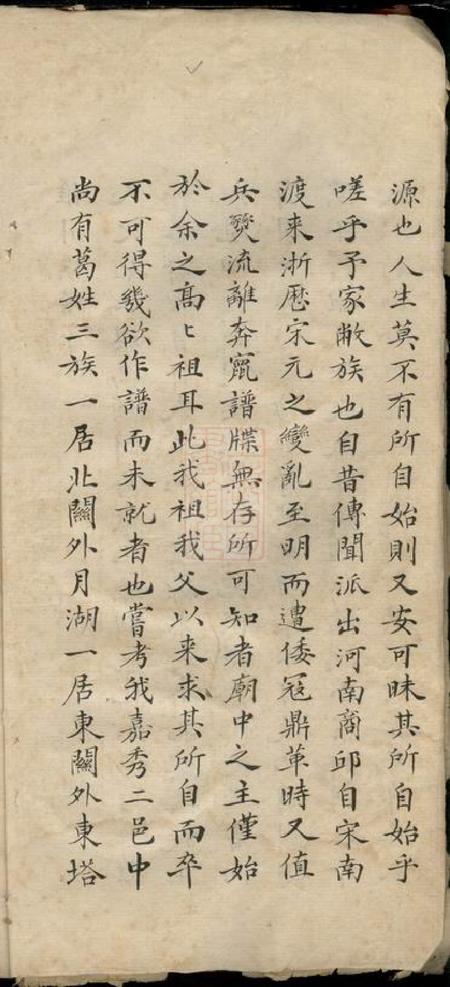 源也人生莫不有所自始則又安可昧其所自始乎
嗟乎予家敝族也自昔傳聞派出河南商邱自宋南
渡来浙歷宋元之變亂至明而遭倭冦鼎革時又值
兵燹流離奔竄譜牒無存所可知者廟中之主僅始
於余之高〻祖耳此我祖我父以来求其所自而卒
不可得幾欲作譜而未就者也嘗考我嘉秀二邑中
尚有葛姓三族一居北關外月湖一居東關外東塔